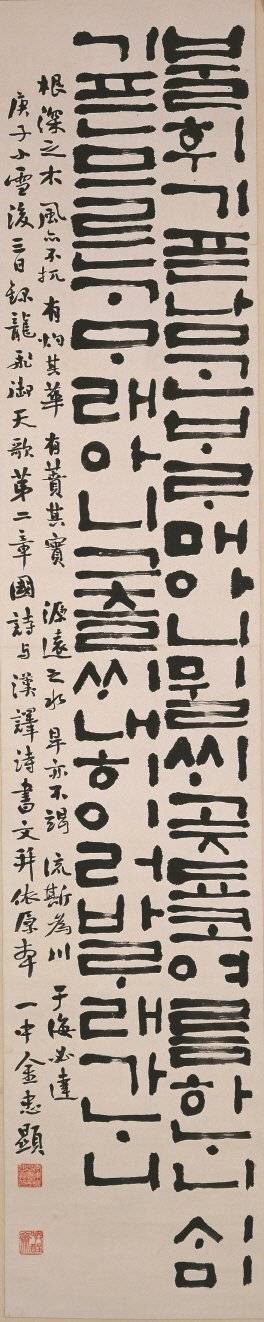 불휘기픈남ᄀᆞᆫᄇᆞᄅᆞ매아니뮐ᄊᆡ곶됴코여름하ᄂᆞ니 ᄉᆡ미
기픈므른ᄀᆞᄆᆞ래아니그츨ᄊᆡ내히이러바ᄅᆞ래가ᄂᆞ니
根深之木 風亦不扤 有灼其華 有蕡其實 源遠之水 旱亦不竭 流斯為川 于海必達
庚子小雪後三日錄龍飛御天歌第二章國詩与漢譯詩書文幷依原本 一中金忠顯